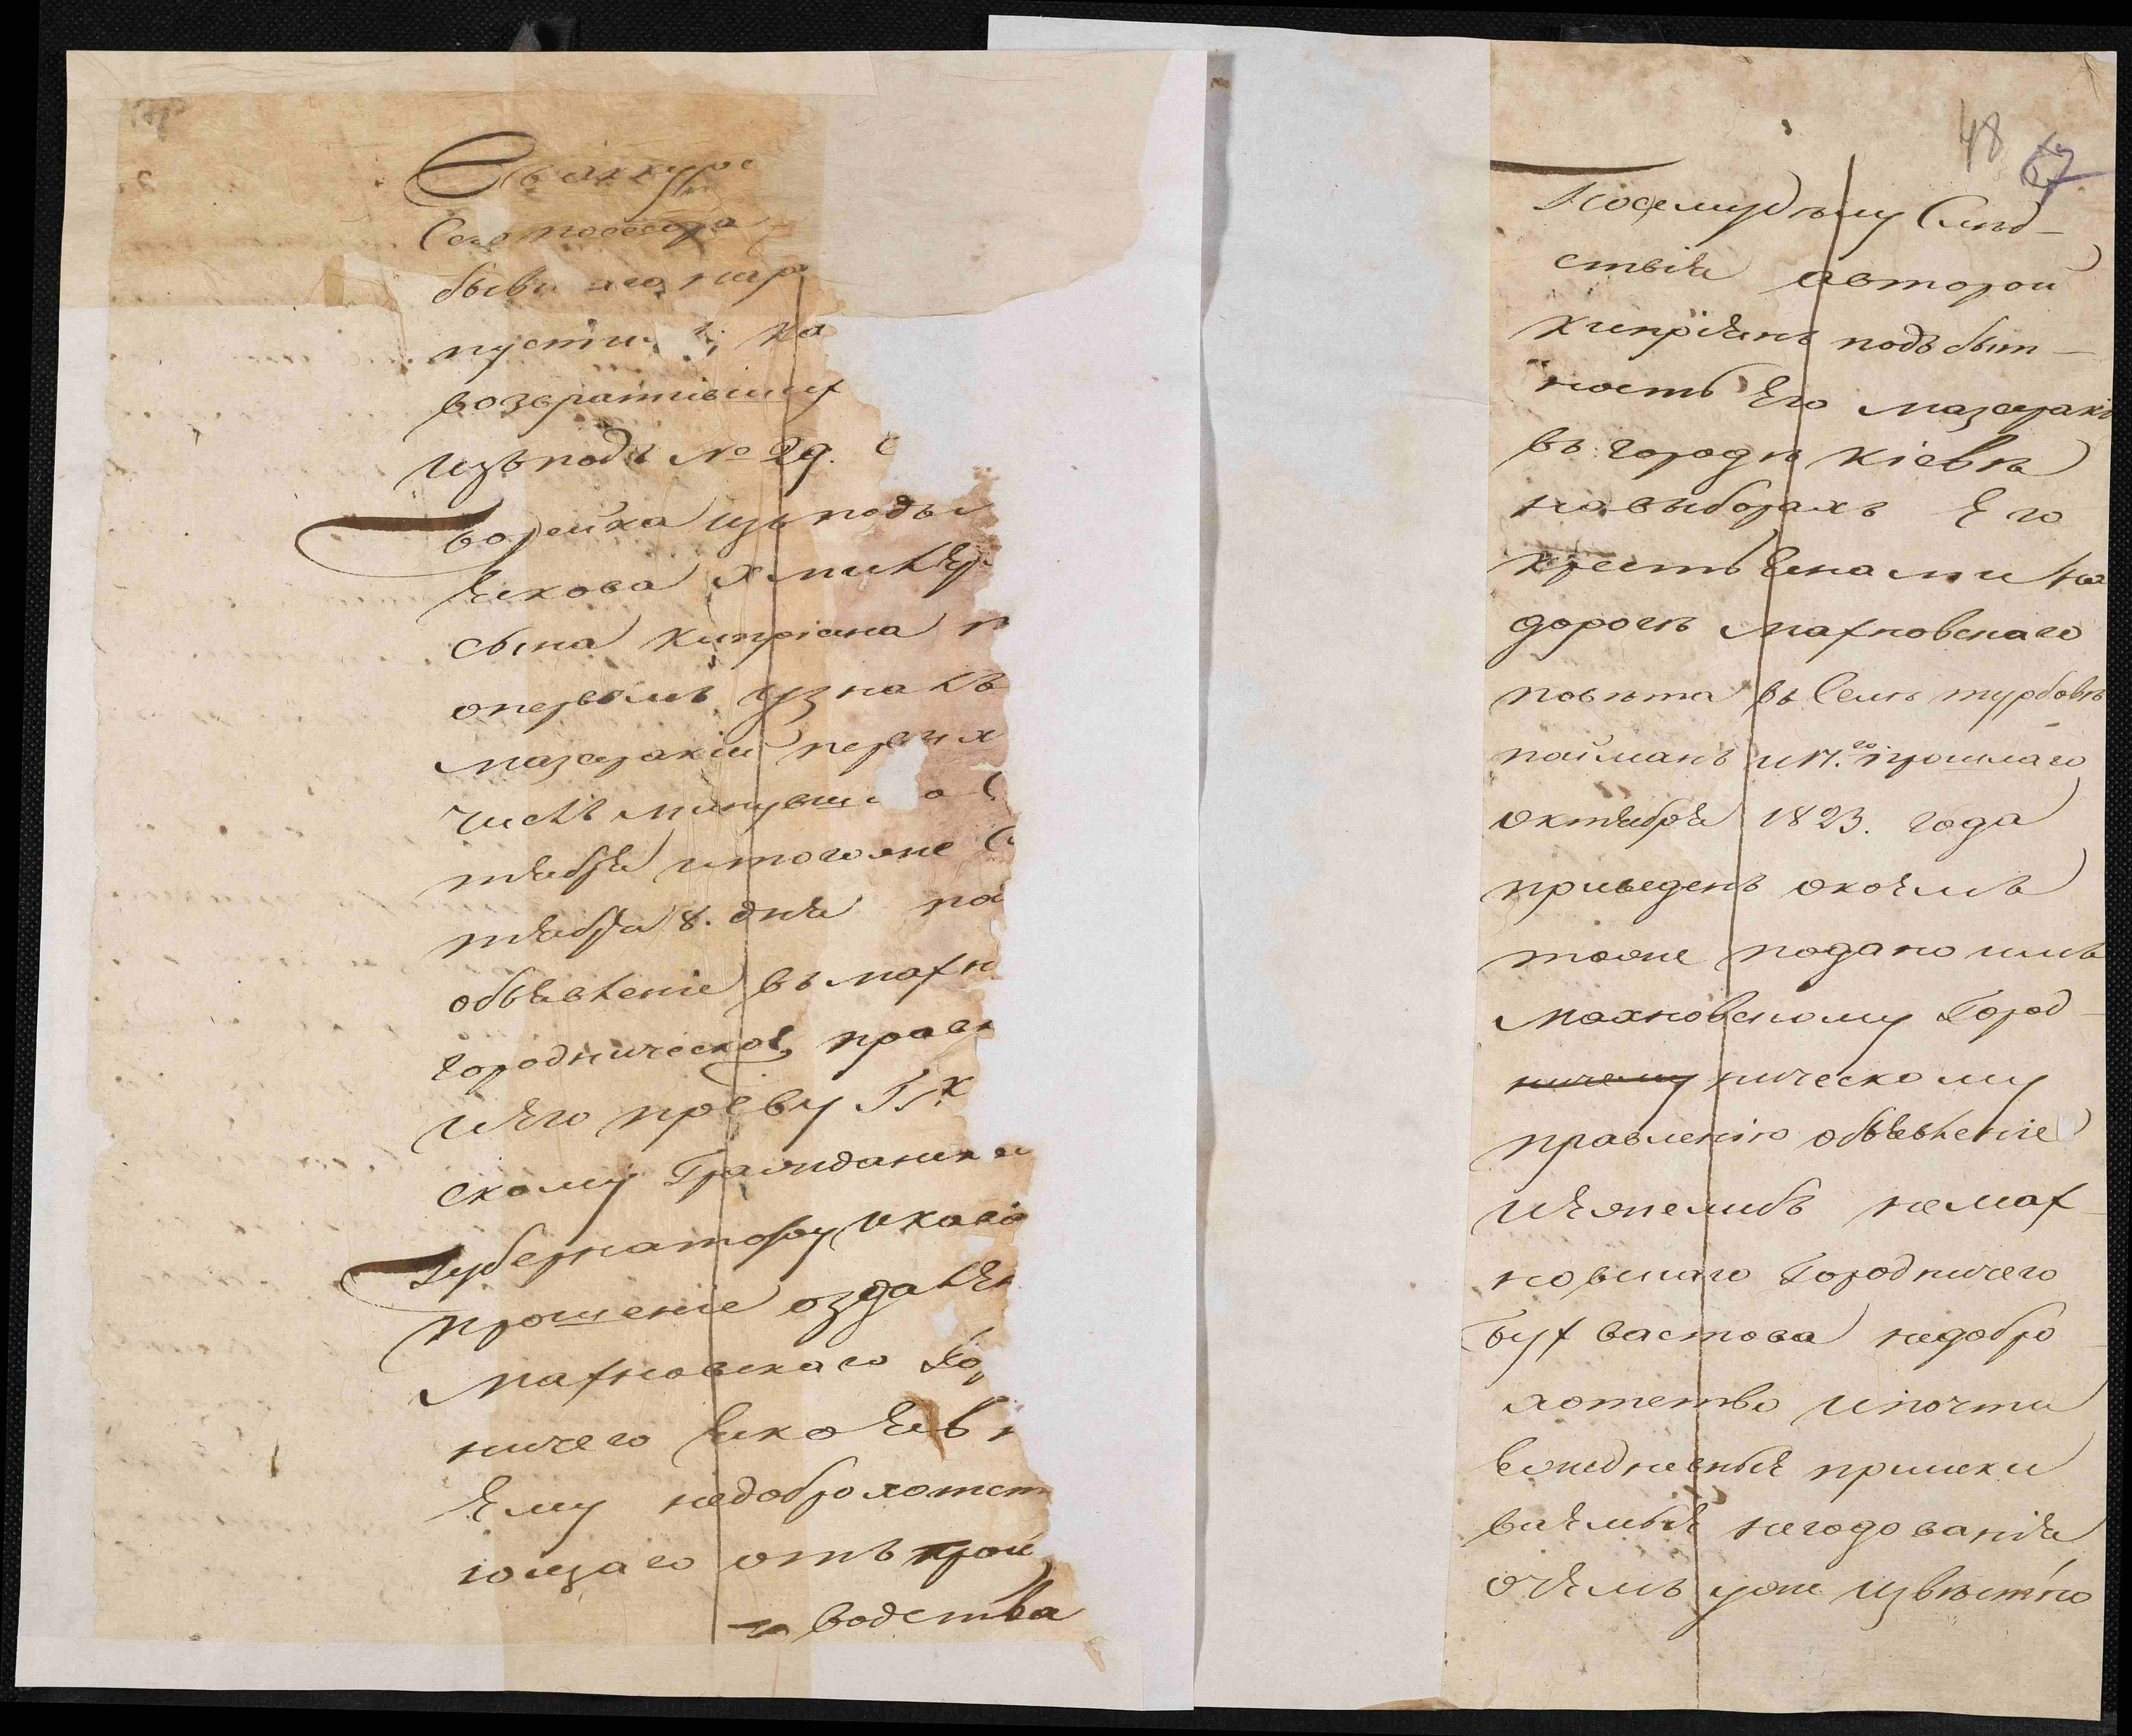 Сего посесора
бывш его пер
пусти
возвратившых
изъ подъ № 29. С
борейка изъ подъ
якова хмилер
сына кипріана п
опервымъ узналъ
мазаракій первых
числъ минувш а С
тября итогоже С
тября 8. дня по
объявленіе въ мах н
городническое прав
иего прев<sup>у</sup>
скому Гражданск
Губернатору и кавал
прошеніе оздаля
махновскаго Го
ничего яко явн
Ему недоброхотст
ющаго отъ прои
водства
48 67
Посемудѣлу Слѣд-
ствія авторой
кипріянъ подъ быт-
ность Его мазараки
въ городѣ кіевѣ
на выборахъ Его
крестьянами на
дорогѣ махновскаго
повѣта въ Селѣ турбовѣ
пойманъ и 17.го прошлаго
октября 1823. года
приведенъ окоемъ
тоже подано имъ
махновскому Город-
ническому
правленію объявленіе
иежелибъ не мах-
новскаго Городничего
бухвастова недобро
хотство ипочти
вседневныя
негодованія
очемъ уже извѣстно